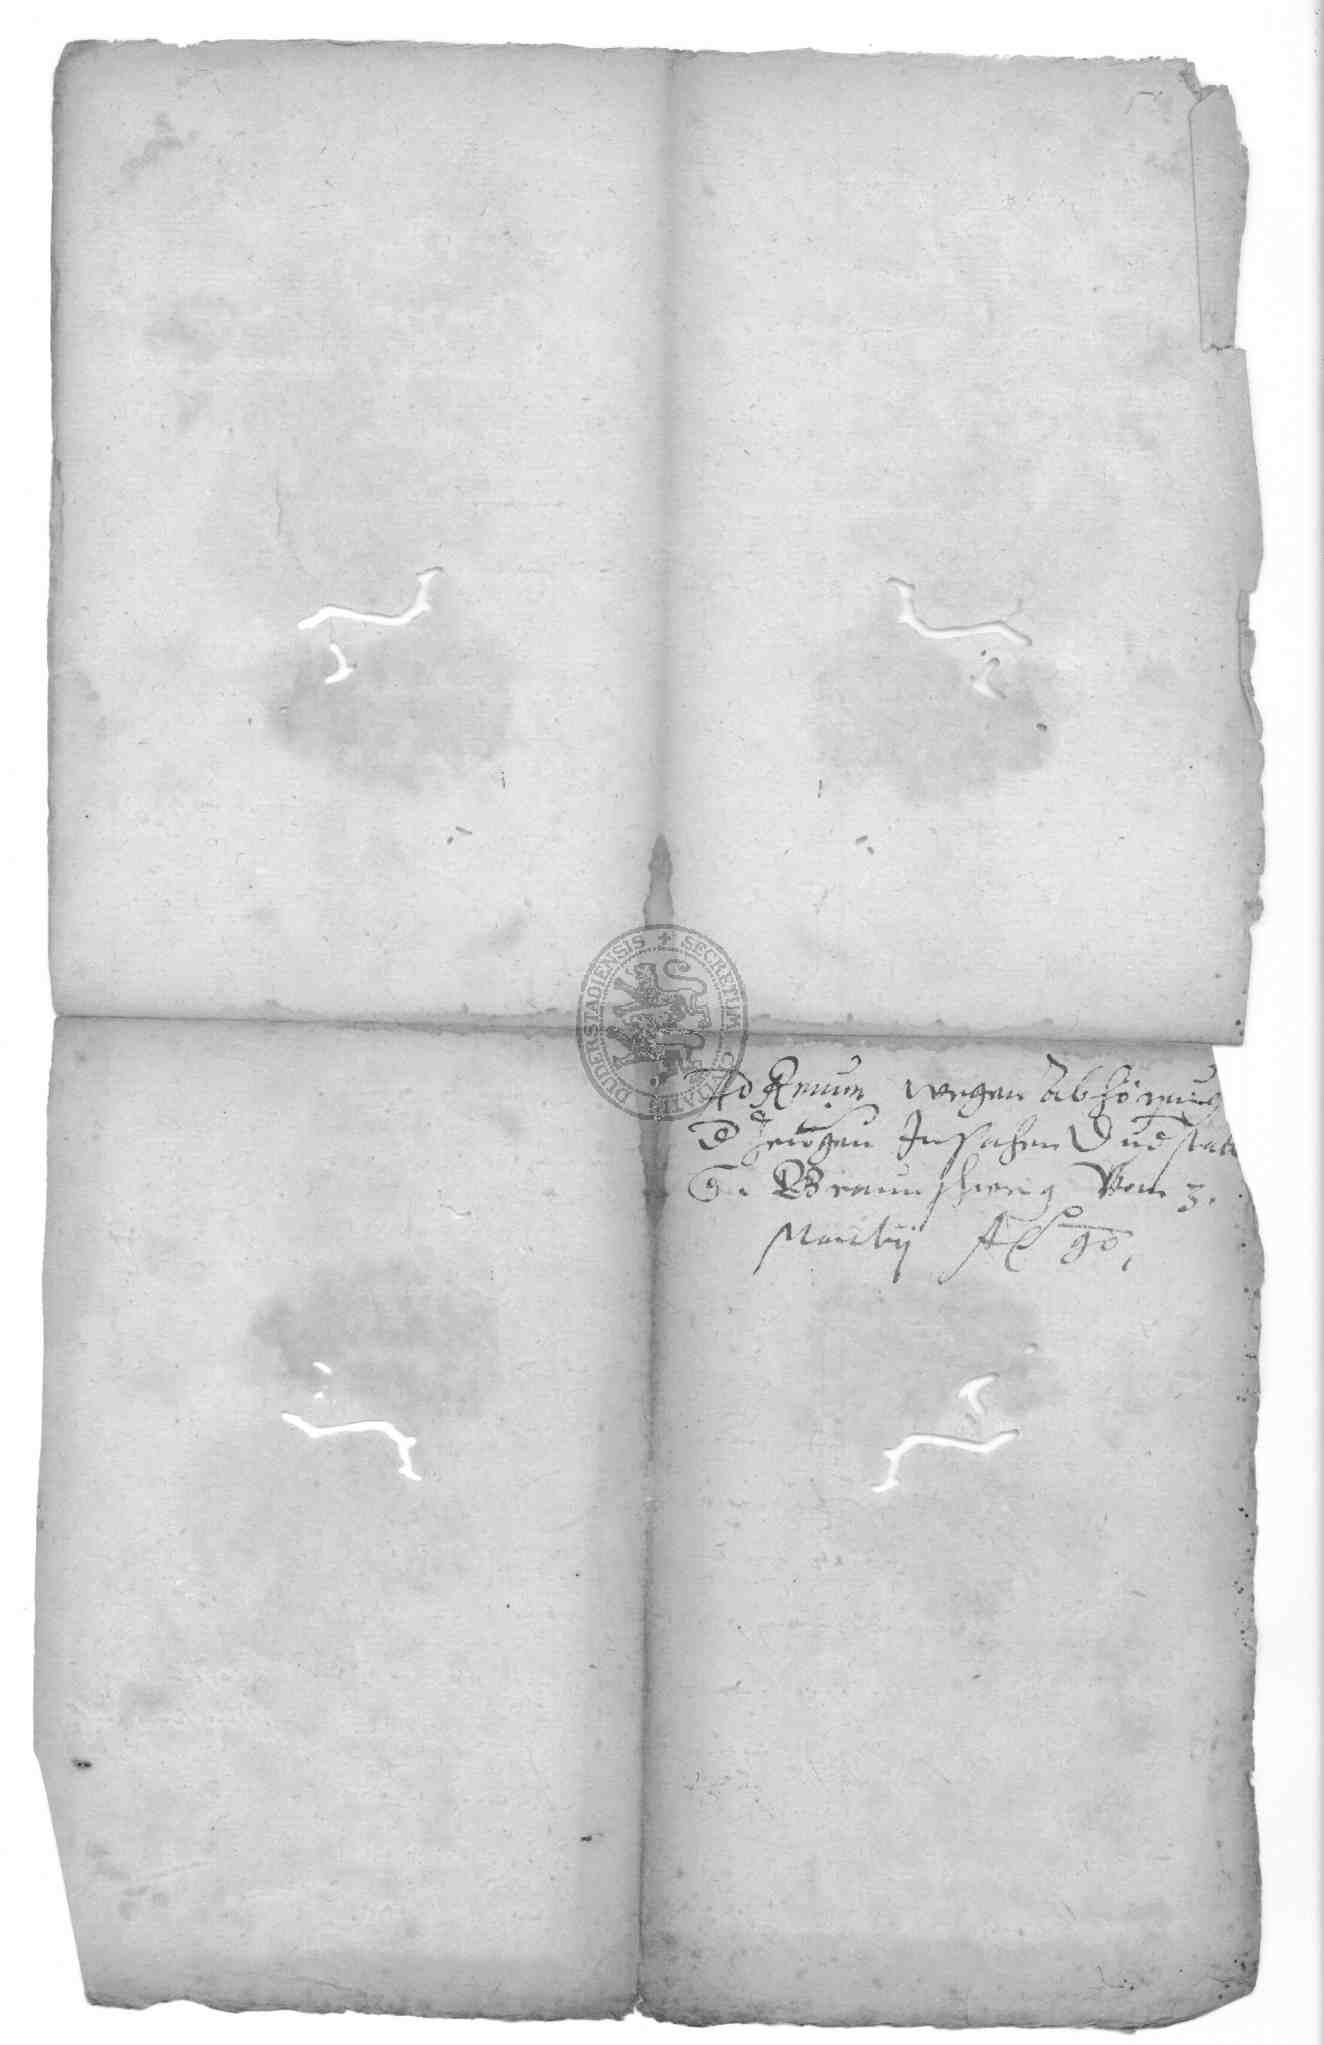 SECRETUM CIVITATIS DUDERSTADIENSIS
Ad Rmum wegen Abhörung
d Zeugen In sachen Dud stadt
Braunschweig Vom 3.
Martij Aº 90,